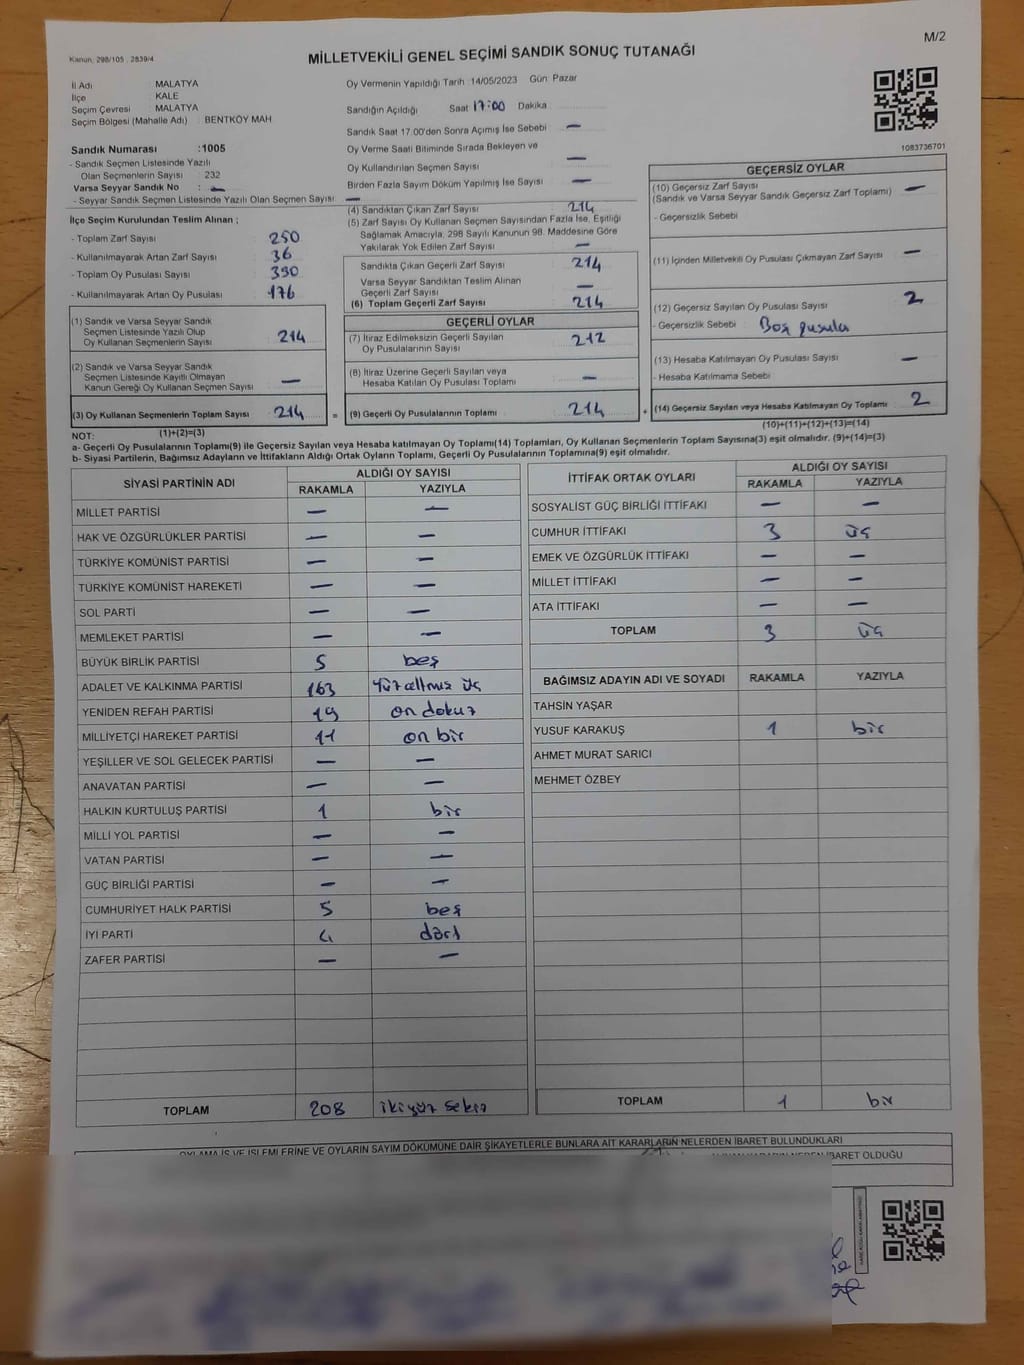 M/2
Kanun, 298/105 , 2839/4
MİLLETVEKİLİ GENEL SEÇİMİ SANDIK SONUÇ TUTANAĞI
İl Adı MALATYA
İlçe KALE
Seçim Çevresi MALATYA
Seçim Bölgesi (Mahalle Adı) : BENTKÖY MAH
Sandık Numarası :1005
- Sandık Seçmen Listesinde Yazılı
Olan Seçmenlerin Sayısı : 232
Varsa Seyyar Sandık No : —
- Seyyar Sandık Seçmen Listesinde Yazılı Olan Seçmen Sayısı : —
İlçe Seçim Kurulundan Teslim Alınan ;
- Toplam Zarf Sayısı 250
- Kullanılmayarak Artan Zarf Sayısı : 36
- Toplam Oy Pusulası Sayısı : 390
- Kullanılmayarak Artan Oy Pusulası : 176
(1) Sandık ve Varsa Seyyar Sandık
Seçmen Listesinde Yazılı Olup
Oy Kullanan Seçmenlerin Sayısı : 214
(2) Sandık ve Varsa Seyyar Sandık
Seçmen Listesinde Kayıtlı Olmayan
Kanun Gereği Oy Kullanan Seçmen Sayısı : —
(3) Oy Kullanan Seçmenlerin Toplam Sayısı : 214
(1)+(2)=(3)
Oy Vermenin Yapıldığı Tarih :14/05/2023 Gün: Pazar
Sandığın Açıldığı Saat 17:00 Dakika
Sandık Saat 17.00'den Sonra Açımış İse Sebebi —
Oy Verme Saati Bitiminde Sırada Bekleyen ve
Oy Kullandırılan Seçmen Sayısı —
Birden Fazla Sayım Döküm Yapılmış İse Sayısı —
(4) Sandıktan Çıkan Zarf Sayısı 214
(5) Zarf Sayısı Oy Kullanan Seçmen Sayısından Fazla İse, Eşitliği
Sağlamak Amacıyla, 298 Sayılı Kanunun 98. Maddesine Göre
Yakılarak Yok Edilen Zarf Sayısı : —
Sandıkta Çıkan Geçerli Zarf Sayısı : 214
Varsa Seyyar Sandıktan Teslim Alınan
Geçerli Zarf Sayısı : —
(6) Toplam Geçerli Zarf Sayısı : 214
GEÇERLİ OYLAR
(7) İtiraz Edilmeksizin Geçerli Sayılan
Oy Pusulalarının Sayısı : 212
(8) İtiraz Üzerine Geçerli Sayılan veya
Hesaba Katılan Oy Pusulası Toplamı : —
= (9) Geçerli Oy Pusulalarının Toplamı : 214
1083736701
GEÇERSİZ OYLAR
(10) Geçersiz Zarf Sayısı
(Sandık ve Varsa Seyyar Sandık Geçersiz Zarf Toplamı) : —
- Geçersizlik Sebebi
(11) İçinden Milletvekili Oy Pusulası Çıkmayan Zarf Sayısı : —
(12) Geçersiz Sayılan Oy Pusulası Sayısı : 2
- Geçersizlik Sebebi : Boş pusula
(13) Hesaba Katılmayan Oy Pusulası Sayısı : —
- Hesaba Katılmama Sebebi
+ (14) Geçersiz Sayılan veya Hesaba Katılmayan Oy Toplamı : 2
(10)+(11)+(12)+(13)=(14)
NOT:
a- Geçerli Oy Pusulalarının Toplamı(9) ile Geçersiz Sayılan veya Hesaba katılmayan Oy Toplamı(14) Toplamları, Oy Kullanan Seçmenlerin Toplam Sayısına(3) eşit olmalıdır. (9)+(14)=(3)
b- Siyasi Partilerin, Bağımsız Adayların ve İttifakların Aldığı Ortak Oyların Toplamı, Geçerli Oy Pusulalarının Toplamına(9) eşit olmalıdır.
SİYASİ PARTİNİN ADI ALDIĞI OY SAYISI
RAKAMLA YAZIYLA
MİLLET PARTİSİ — —
HAK VE ÖZGÜRLÜKLER PARTİSİ — —
TÜRKİYE KOMÜNİST PARTİSİ — —
TÜRKİYE KOMÜNİST HAREKETİ — —
SOL PARTİ — —
MEMLEKET PARTİSİ — —
BÜYÜK BİRLİK PARTİSİ 5 beş
ADALET VE KALKINMA PARTİSİ 163 Yüz altmış üç
YENİDEN REFAH PARTİSİ 19 on dokuz
MİLLİYETÇİ HAREKET PARTİSİ 11 on bir
YEŞİLLER VE SOL GELECEK PARTİSİ — —
ANAVATAN PARTİSİ — —
HALKIN KURTULUŞ PARTİSİ 1 bir
MİLLİ YOL PARTİSİ — —
VATAN PARTİSİ — —
GÜÇ BİRLİĞİ PARTİSİ — —
CUMHURİYET HALK PARTİSİ 5 beş
İYİ PARTİ 4 dört
ZAFER PARTİSİ — —
TOPLAM 208 ikiyüz sekiz
İTTİFAK ORTAK OYLARI ALDIĞI OY SAYISI
RAKAMLA YAZIYLA
SOSYALİST GÜÇ BİRLİĞİ İTTİFAKI — —
CUMHUR İTTİFAKI 3 üç
EMEK VE ÖZGÜRLÜK İTTİFAKI — —
MİLLET İTTİFAKI — —
ATA İTTİFAKI — —
TOPLAM 3 üç
BAĞIMSIZ ADAYIN ADI VE SOYADI RAKAMLA YAZIYLA
TAHSİN YAŞAR
YUSUF KARAKUŞ 1 bir
AHMET MURAT SARICI
MEHMET ÖZBEY
TOPLAM 1 bir
OYLAMA İŞ VE İŞLEMLERİNE VE OYLARIN SAYIM DÖKÜMÜNE DAİR ŞİKAYETLERLE BUNLARA AİT KARARLARIN NELERDEN İBARET BULUNDUKLARI
İBARET OLDUĞU